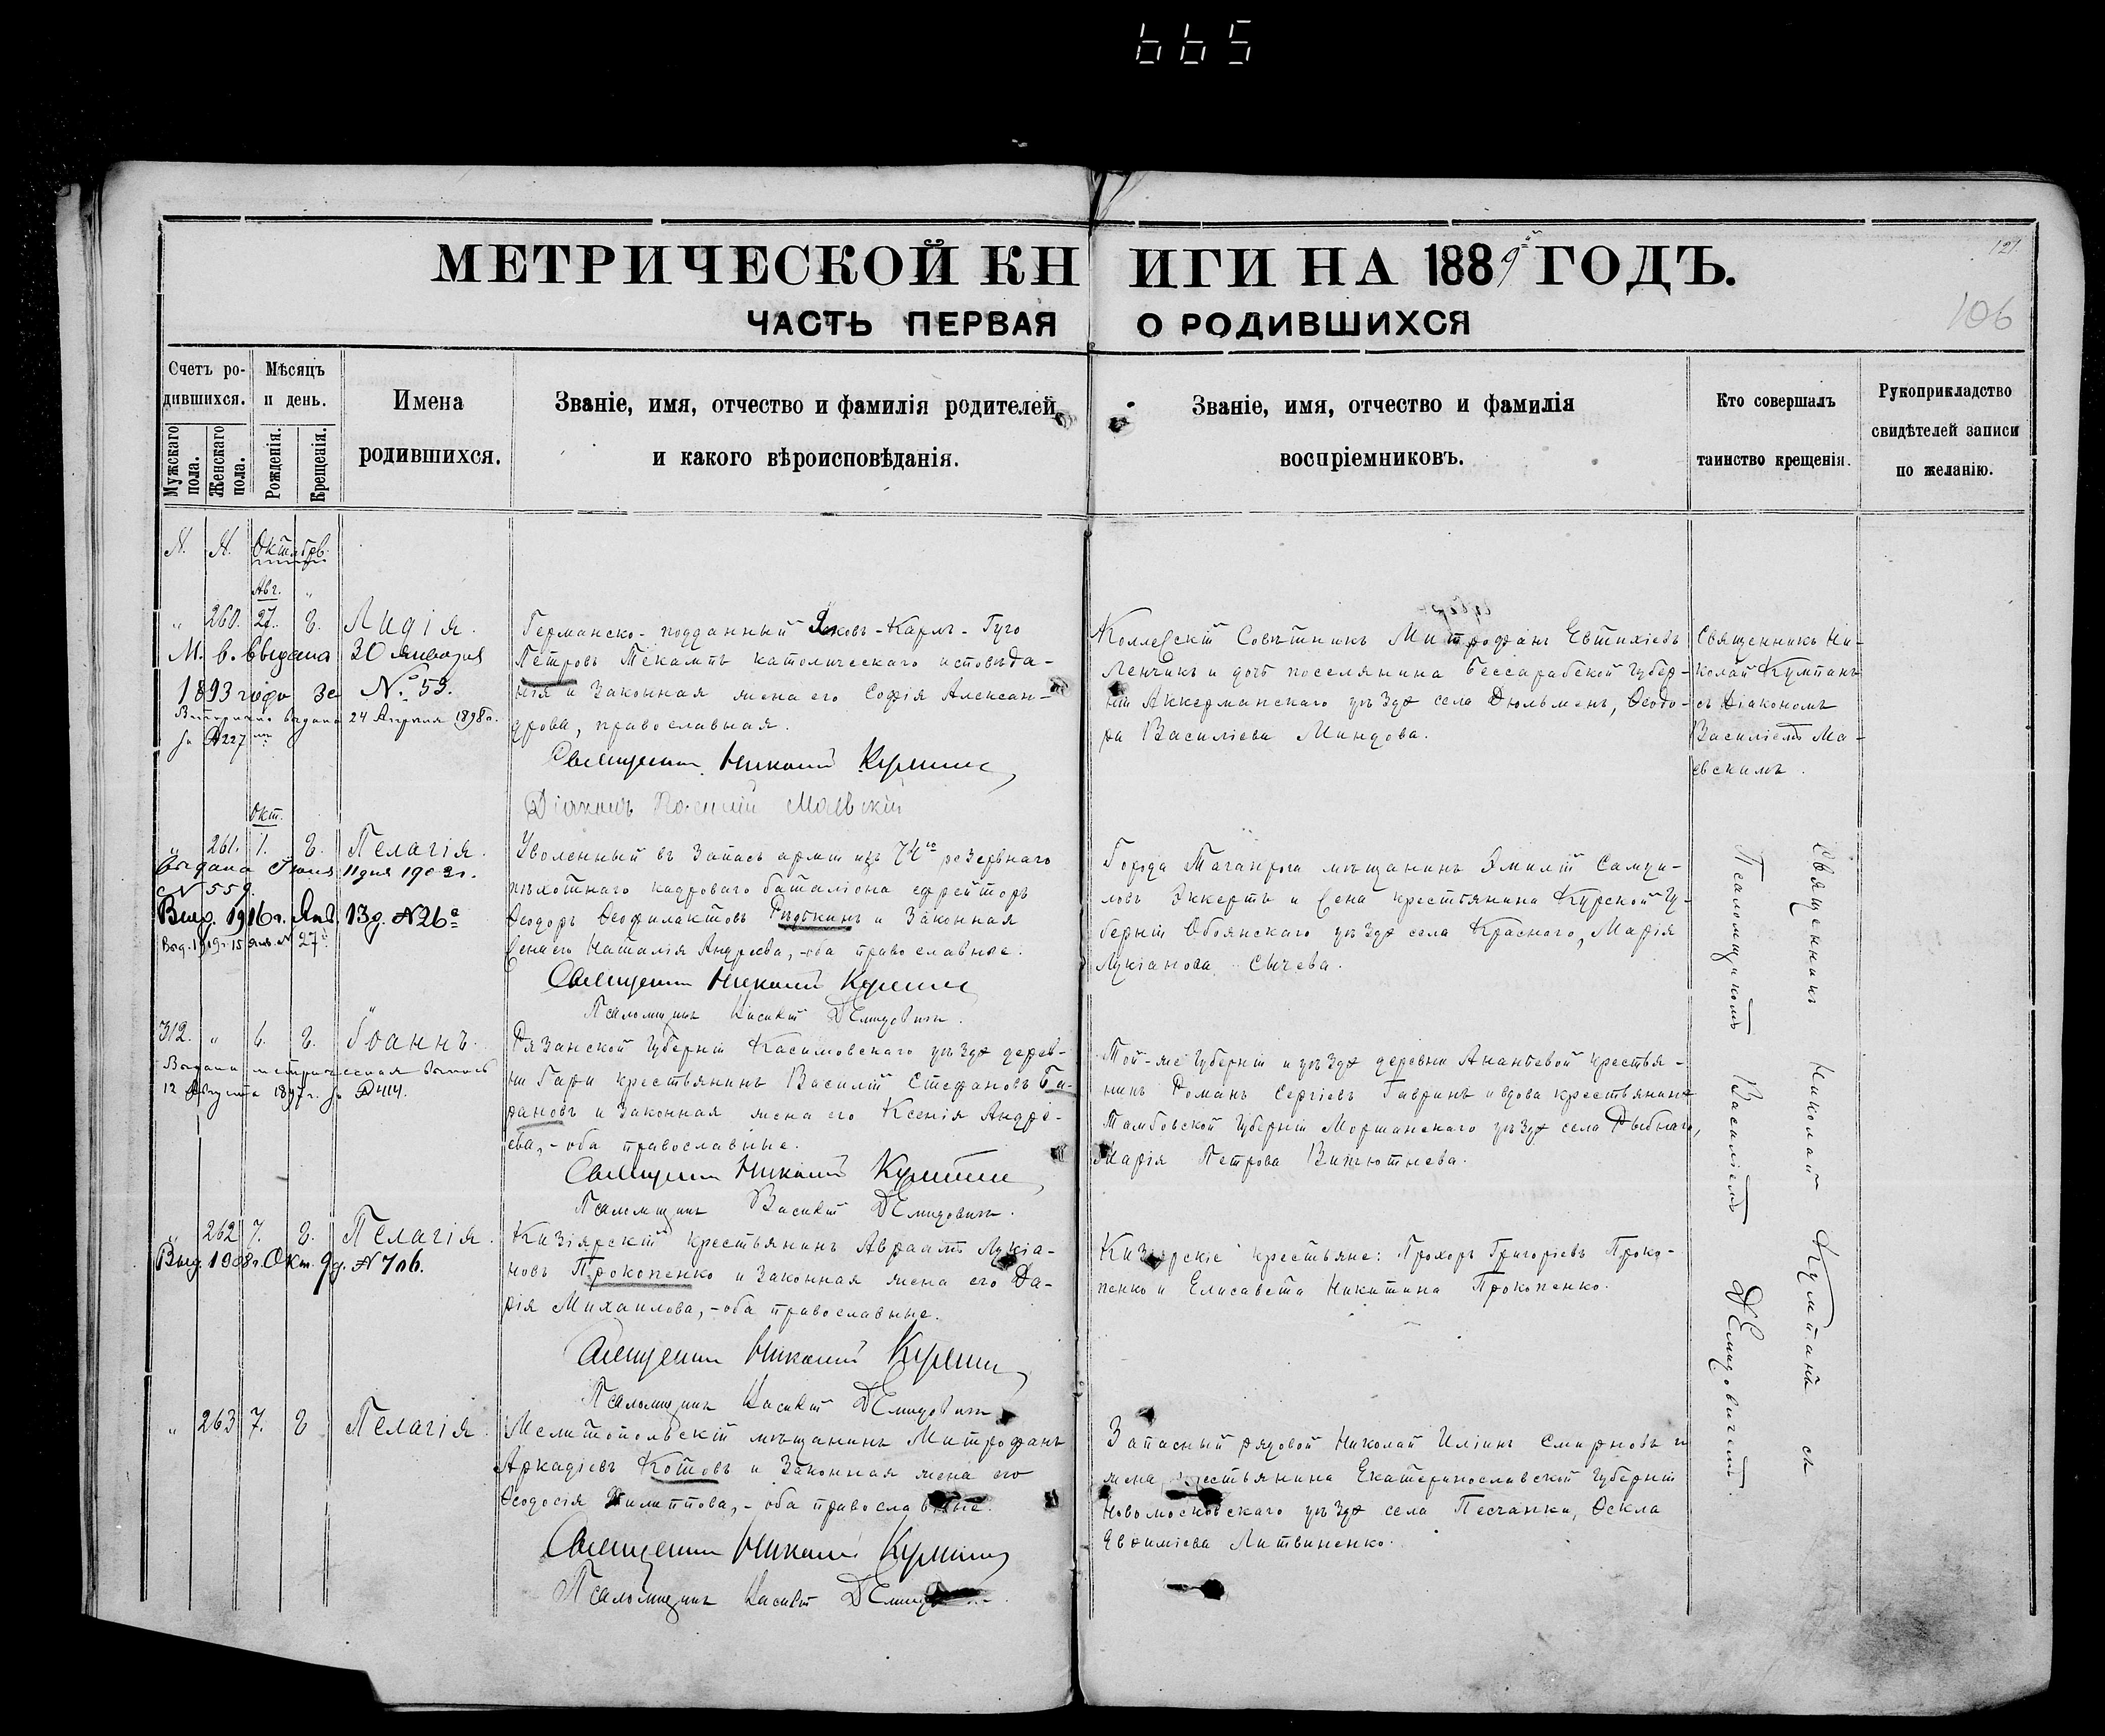 665
МЕТРИЧЕСКОЙ КНИГИ НА 1889й ГОДЪ.
121.
106
ЧАСТЬ ПЕРВАЯ О РОДИВШИХСЯ
Счетъ родившихся.
Мужскаго пола.
Женскаго пола.
Мѣсяцъ и день.
Рожденія.
Крещенія.
Имена родившихся.
Званіе, имя, отчество и фамилія родителей,
и какого вѣроисповѣданія.
Званіе, имя, отчество и фамилія
воспріемниковъ.
Кто совершалъ
таинство крещенія.
Рукоприкладство
свидѣтелей записи
по желанію.
М. Ж. Октябрь.
Авг. „
„ 260. 27. 8. Лидія.
М. в. выдана 30 января
1893 года за №. 59.
Вторично выдана 24 Апрѣля 1898 г.
за №227
Германско-подданный Яковъ-Карлъ-Гуго
Петровъ Текампъ католическаго исповѣда-
нія и законная жена его Софія Алексан-
дрова, православная.
Священникъ Николай Кумпанъ
Діаконъ Василій Маевскій
Коллежскій Совѣтникъ Митрофанъ Евтихіевъ
Ленчикъ и дочь поселянина Бессарабской губер-
ніи Аккерманскаго уѣзда села Дюльмень, Ѳеодо-
ра Василіева Миндова.
Священникъ Ни-
колай Кумпанъ
съ діакономъ
Василіемъ Ма-
евскимъ.
Окт.
„ 261. 1. 8. Пелагія.
Выдана Іюня 11 дня 1902 г.
№ 559.
Выд. 1916 г. Янв. 13 д. №26
Выд. 1919 г. 15 Янв. № 27
Уволенный въ запасъ арміи изъ 74го резервнаго
пѣхотнаго кадроваго баталіона ефрейторъ
Ѳеодоръ Ѳеофилактовъ Рѣдькинъ и законная
жена его Наталія Андреева, - оба православные.
Священникъ Николай Кумпанъ
Псаломщикъ Василій Демидовичъ.
Города Таганрога мѣщанинъ Эмилій Самуи-
ловъ Эккертъ и жена крестьянина Курской гу-
берніи Обоянскаго уѣзда села Краснаго, Марія
Лукіанова Сычева.
Священникъ Николай Кумпанъ съ
Псаломщикомъ Василіемъ Демидовичемъ.
312. „ 6. 8. Іоаннъ.
Выдана метрическая выпись
12 Августа 1897 г. за №414.
Рязанской губерніи Касимовскаго уѣзда дерев-
ни Гари крестьянинъ Василій Стефановъ Ба-
рановъ и законная жена его Ксенія Андре-
ева, - оба православные.
Священникъ Николай Кумпанъ
Псаломщикъ Василій Демидовичъ.
Той-же губерніи и уѣзда деревни Ананьевой крестья-
нинъ Романъ Сергіевъ Гавринъ и вдова крестьянина
Тамбовской губерніи Моршанскаго уѣзда села Рыбнаго,
Марія Петрова
„ 262 7. 8. Пелагія.
Выд. 1908 г. Окт. 9 д. № 706.
Кизіярскій крестьянинъ Авраамъ Лукіа-
новъ Прокопенко и законная жена его Да-
рія Михаилова, - оба православные.
Священникъ Николай Кумпанъ
Псаломщикъ Василій Демидовичъ
Кизіярскіе крестьяне: Прохоръ Григоріевъ Проко-
пенко и Елисавета Никитина Прокопенко.
„ 263 7. 8 Пелагія.
Мелитопольскій мѣщанинъ Митрофанъ
Аркадіевъ Котовъ и законная жена его
Ѳеодосія Филиппова, - оба православные.
Священникъ Николай Кумпанъ
Псаломщикъ Василій
Запасный рядовой Николай Иліинъ Смирновъ и
жена крестьянина Екатеринославской губерніи
Новомосковскаго уѣзда села Песчанки, Ѳекла
Евѳиміева Литвиненко.